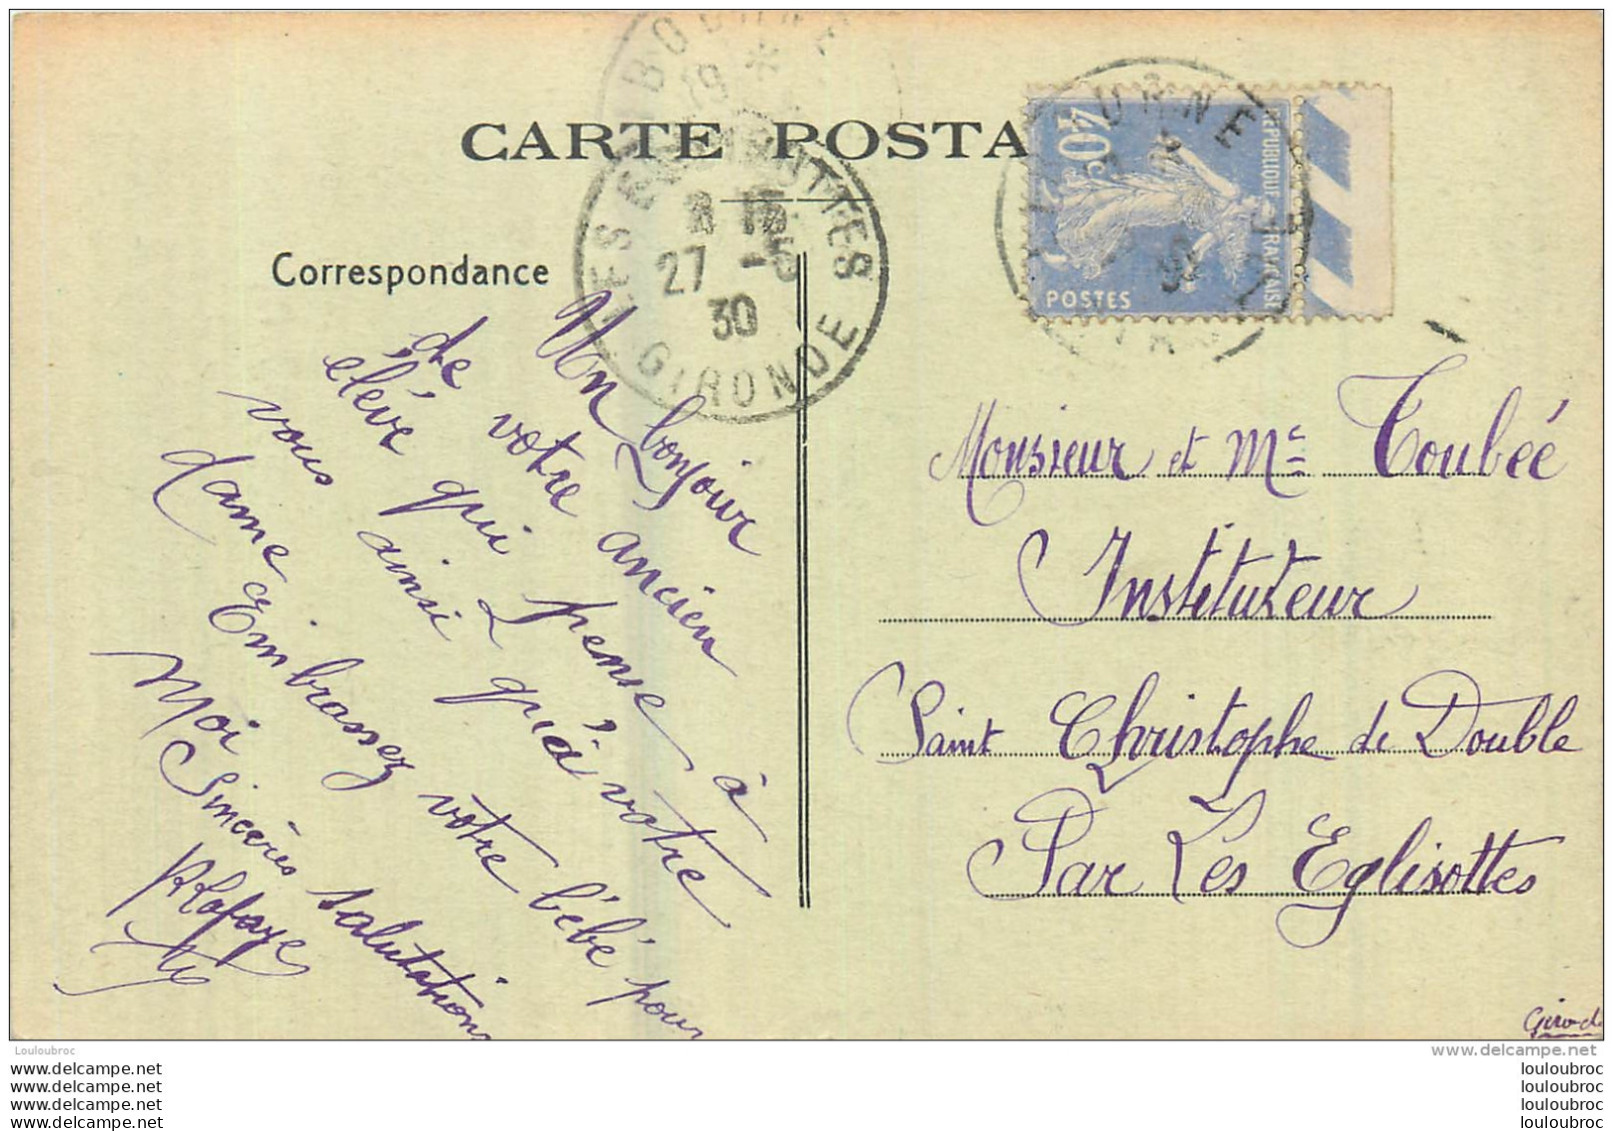 CARTE POSTA
Correspondance
LES EGLISOTTES
27 -5
30
GIRONDE
40c
REPUBLIQUE FRANÇAISE
POSTES
Un bonjour
de votre ancien
élève qui pense à
vous ainsi qu'à votre
dame Embrassez votre bébé pour
moi
Sincères salutations
RLafaye
Monsieur et Me Toubéé
Instituteur
Saint Christophe de Double
Par Les Eglisottes
Girond
Louloubroc
www.delcampe.net
www.delcampe.net louloubroc
www.delcampe.net louloubroc
www.delcampe.net louloubroc
www.delcampe.net louloubroc